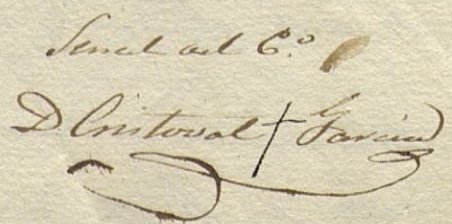 Señal del C.º
D Cristoval + Garcia